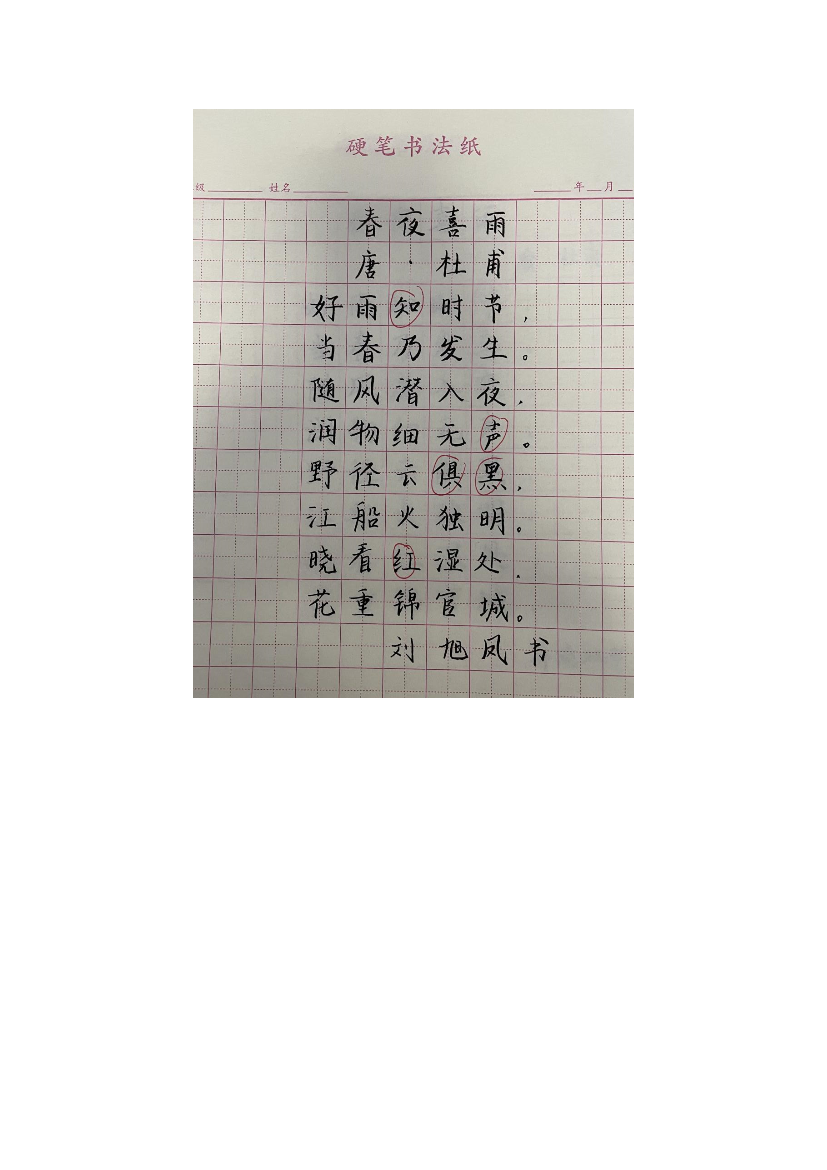 硬笔书法纸
级 姓名 年 月
春夜喜雨
唐·杜甫
好雨知时节，
当春乃发生。
随风潜入夜，
润物细无声。
野径云俱黑，
江船火独明。
晓看红湿处，
花重锦官城。
刘旭凤书